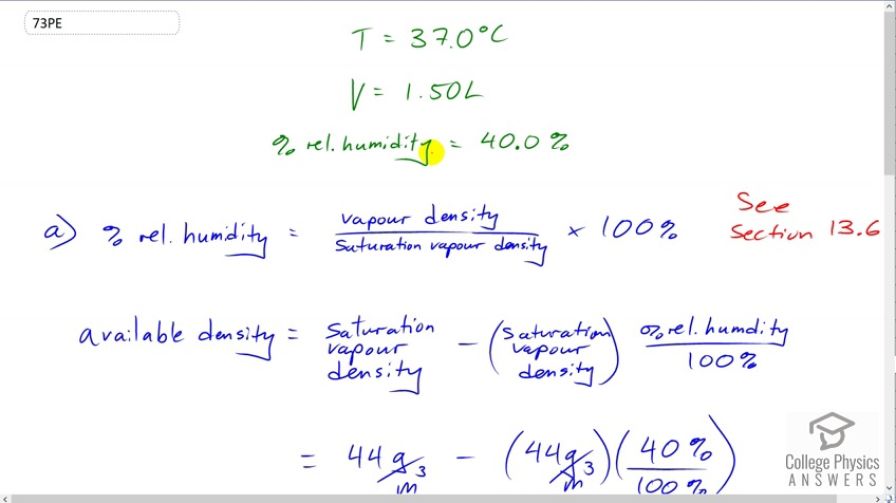 73PE
T = 37.0°C
V = 1.50L
% rel. humidity = 40.0%
a) % rel. humidity = vapour density / Saturation vapour density × 100%
See Section 13.6
available density = Saturation vapour density − (Saturation vapour density) % rel. humdity / 100%
= 44 g/m³ − (44 g/m³)(40% / 100%)
College Physics
ANSWERS